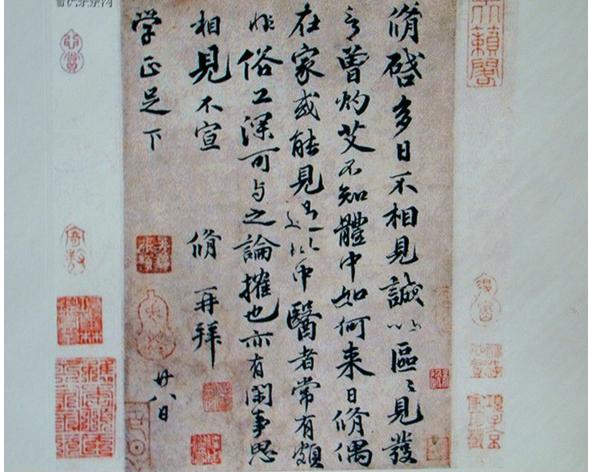 脩啓多日不相見誠以區〻見發
言曾灼艾不知體中如何来日脩偶
在家或能見過此中醫者常有頗
非俗工深可与之論搉也亦有閑事思
相見不宣 脩再拜
学正足下 廿八日
天籟閣